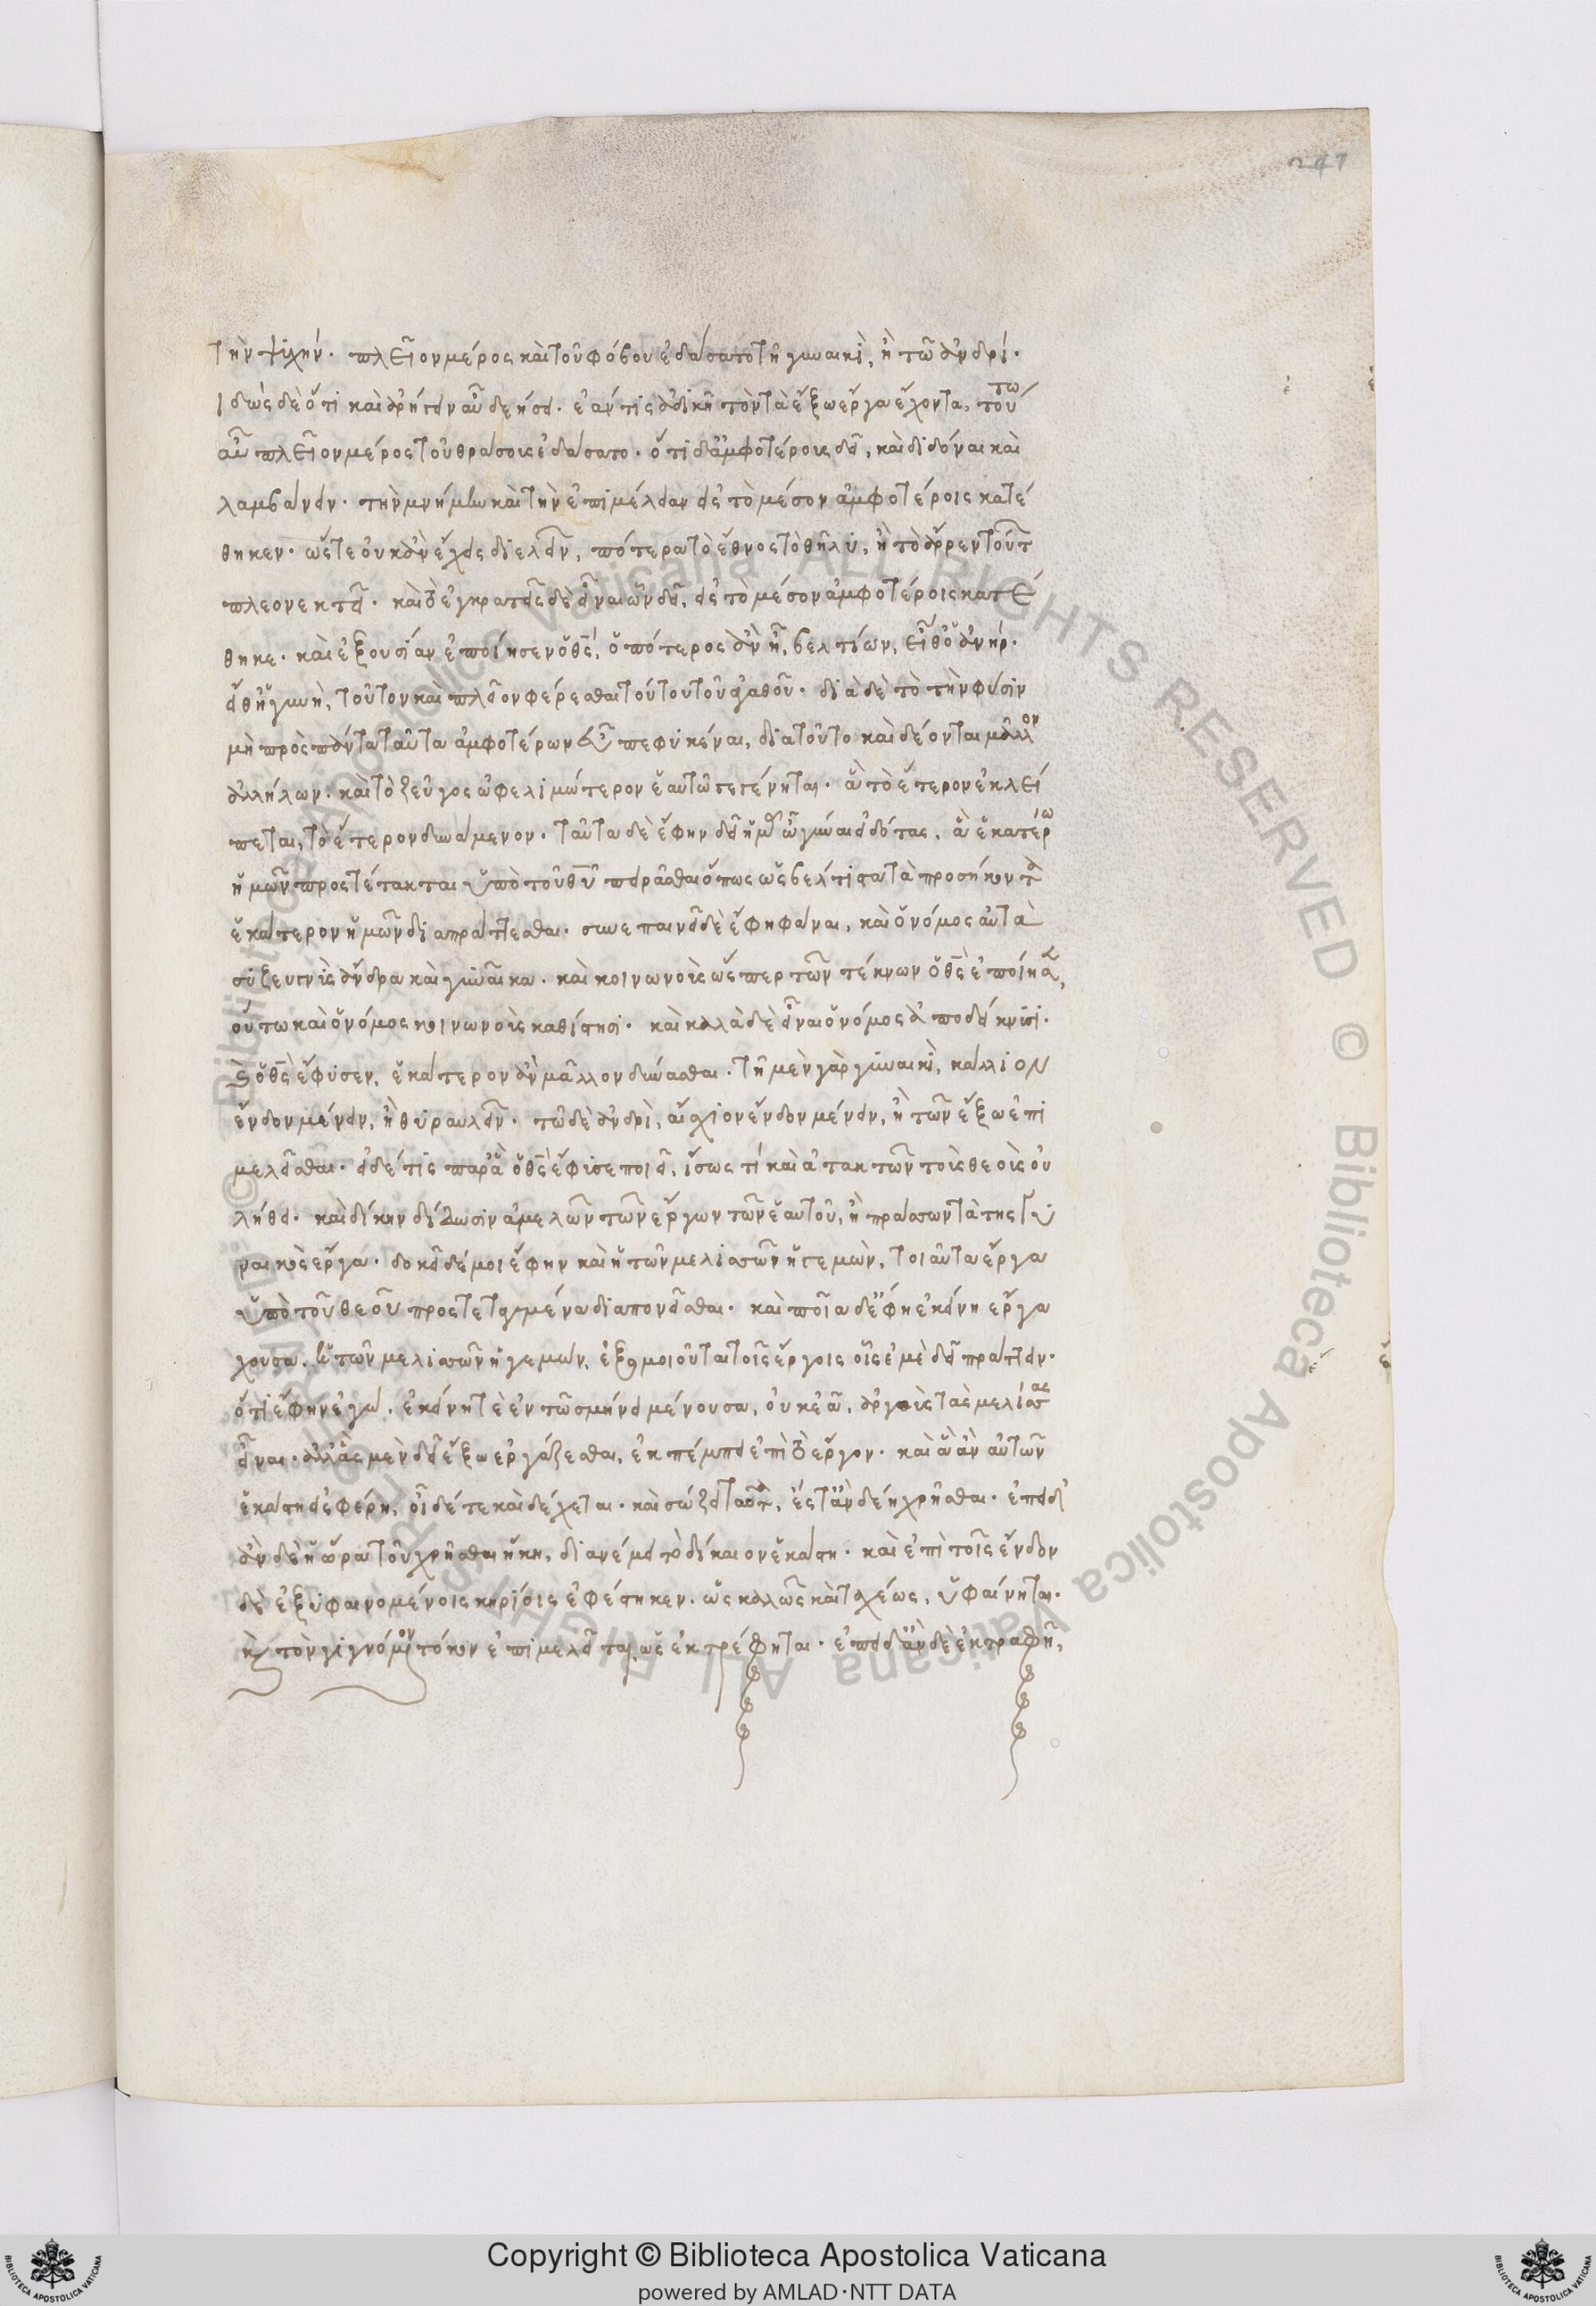 247
τὴν ψυχήν. πλεῖον μέρος καὶ τοῦ φόβου ἐδάσατο τῇ γυναικὶ, ἢ τῶ ἀνδρί.
ἰδὼς δὲ ὅτι καὶ ἀρήγειν αὖ δεήσει. ἐάν τις ἀδικῇ τὸν τὰ ἔξω ἔργα ἔχοντα, τούτω
αὖ πλεῖον μέρος τοῦ θράσους ἐδάσατο. ὅτι δ' ἀμφοτέρους δεῖ, καὶ διδόναι καὶ
λαμβάνειν. τὴν μνήμην καὶ τὴν ἐπιμέλειαν εἰς τὸ μέσον ἀμφοτέροις κατέ
θηκεν. ὥστε οὐκ ἂν ἔχεις διελεῖν, πότερα τὸ ἔθνος τὸ θῆλυ, ἢ τὸ ἄρρεν τούτ
πλεονεκτεῖ. καὶ τὸ ἐγκρατεῖς δὲ εἶναι ὧν δεῖ, εἰς τὸ μέσον ἀμφοτέροις κατέ
θηκε. καὶ ἐξουσίαν ἐποίησεν ὁ θς, ὁπότερος ἂν ᾖ, βελτίων, εἴθ' ὁ ἀνήρ.
εἴθ' ἡ γυνὴ, τοῦτον καὶ πλεῖον φέρεσθαι τούτου τοῦ ἀγαθοῦ. διὰ δὲ τὸ τὴν φύσιν
μὴ πρὸς πάντα ταῦτα ἀμφοτέρων εὖ πεφυκέναι, διὰ τοῦτο καὶ δέονται μᾶλλον
ἀλλήλων. καὶ τὸ ζεῦγος ὠφελιμώτερον ἑαυτῶ γεγένηται. ἃ τὸ ἕτερον ἐκλεί
πεται, τὸ ἕτερον δυνάμενον. ταῦτα δὲ ἔφην δεῖ ἡμᾶς ὦ γύναι εἰδότας, ἃ ἑκατέρω
ἡμῶν προστέτακται ὑπὸ τοῦ θυ πειρᾶσθαι ὅπως ὡς βέλτιστα τὰ προσήκοντα
ἑκάτερον ἡμῶν διαπράττεσθαι. συνεπαινεῖ δὲ ἔφη φάναι, καὶ ὁ νόμος αὐτὰ
συζευγνὺς ἄνδρα καὶ γυναῖκα. καὶ κοινωνοὺς ὥσπερ τῶν τέκνων ὁ θς ἐποίησεν,
οὕτω καὶ ὁ νόμος κοινωνοὺς καθίστησι. καὶ καλὰ δὲ εἶναι ὁ νόμος ἀποδείκνυσι.
ἃ ὁ θς ἔφυσεν, ἑκάτερον ἂν μᾶλλον δύνασθαι. τῇ μὲν γὰρ γυναικὶ, κάλλιον
ἔνδον μένειν, ἢ θυραυλεῖν. τῶ δὲ ἀνδρὶ, αἴσχιον ἔνδον μένειν, ἢ τῶν ἔξω ἐπι
μελεῖσθαι. εἰ δέ τις παρ' ἃ ὁ θς ἔφυσε ποιεῖ, ἴσως τί καὶ ἀτακτῶν τοὺς θεοὺς οὐ
λήθει. καὶ δίκην δίδωσιν ἀμελῶν τῶν ἔργων τῶν ἑαυτοῦ, ἢ πράσσων τὰ τῆς γυ
ναικὸς ἔργα. δοκεῖ δέ μοι ἔφην καὶ ἡ τῶν μελισσῶν ἡγεμὼν, τοιαῦτα ἔργα
ὑπὸ τοῦ θεοῦ προστεταγμένα διαπονεῖσθαι. καὶ ποῖα δὲ ἔφη ἐκείνη ἔργα
ἔχουσα. ἡ τῶν μελισσῶν ἡγεμὼν, ἐξομοιοῦται τοῖς ἔργοις οἷς ἐμὲ δεῖ πράττειν.
ὅτι ἔφην ἐγώ. ἐκείνη τὲ ἐν τῶ σμήνει μένουσα, οὐκ ἐᾶ, ἀργοὺς τὰς μελίσσας
εἶναι. ἀλλ' ἃς μὲν δεῖ ἔξω ἐργάζεσθαι, ἐκπέμπει ἐπὶ τὸ ἔργον. καὶ ἃ ἂν αὐτῶν
ἑκάστη εἰσφέρη, οἶδέ τε καὶ δέχεται. καὶ σώζει ταῦτα, ἔστ' ἂν δέη χρῆσθαι. ἐπειδ'
ἂν δὲ ἡ ὥρα τοῦ χρῆσθαι ἥκη, διανέμει τὸ δίκαιον ἑκάστη. καὶ ἐπὶ τοῖς ἔνδον
δὲ ἐξυφαινομένοις κηρίοις ἐφέστηκεν. ὡς καλῶς καὶ ταχέως, ὑφαίνηται.
καὶ τὸν γιγνόμενον τόκον ἐπιμελεῖται, ὡς ἐκτρέφηται. ἐπειδ' ἂν δὲ ἐκτραφῇ,
Biblioteca Apostolica Vaticana ALL RIGHTS RESERVED ©
Copyright © Biblioteca Apostolica Vaticana
powered by AMLAD·NTT DATA